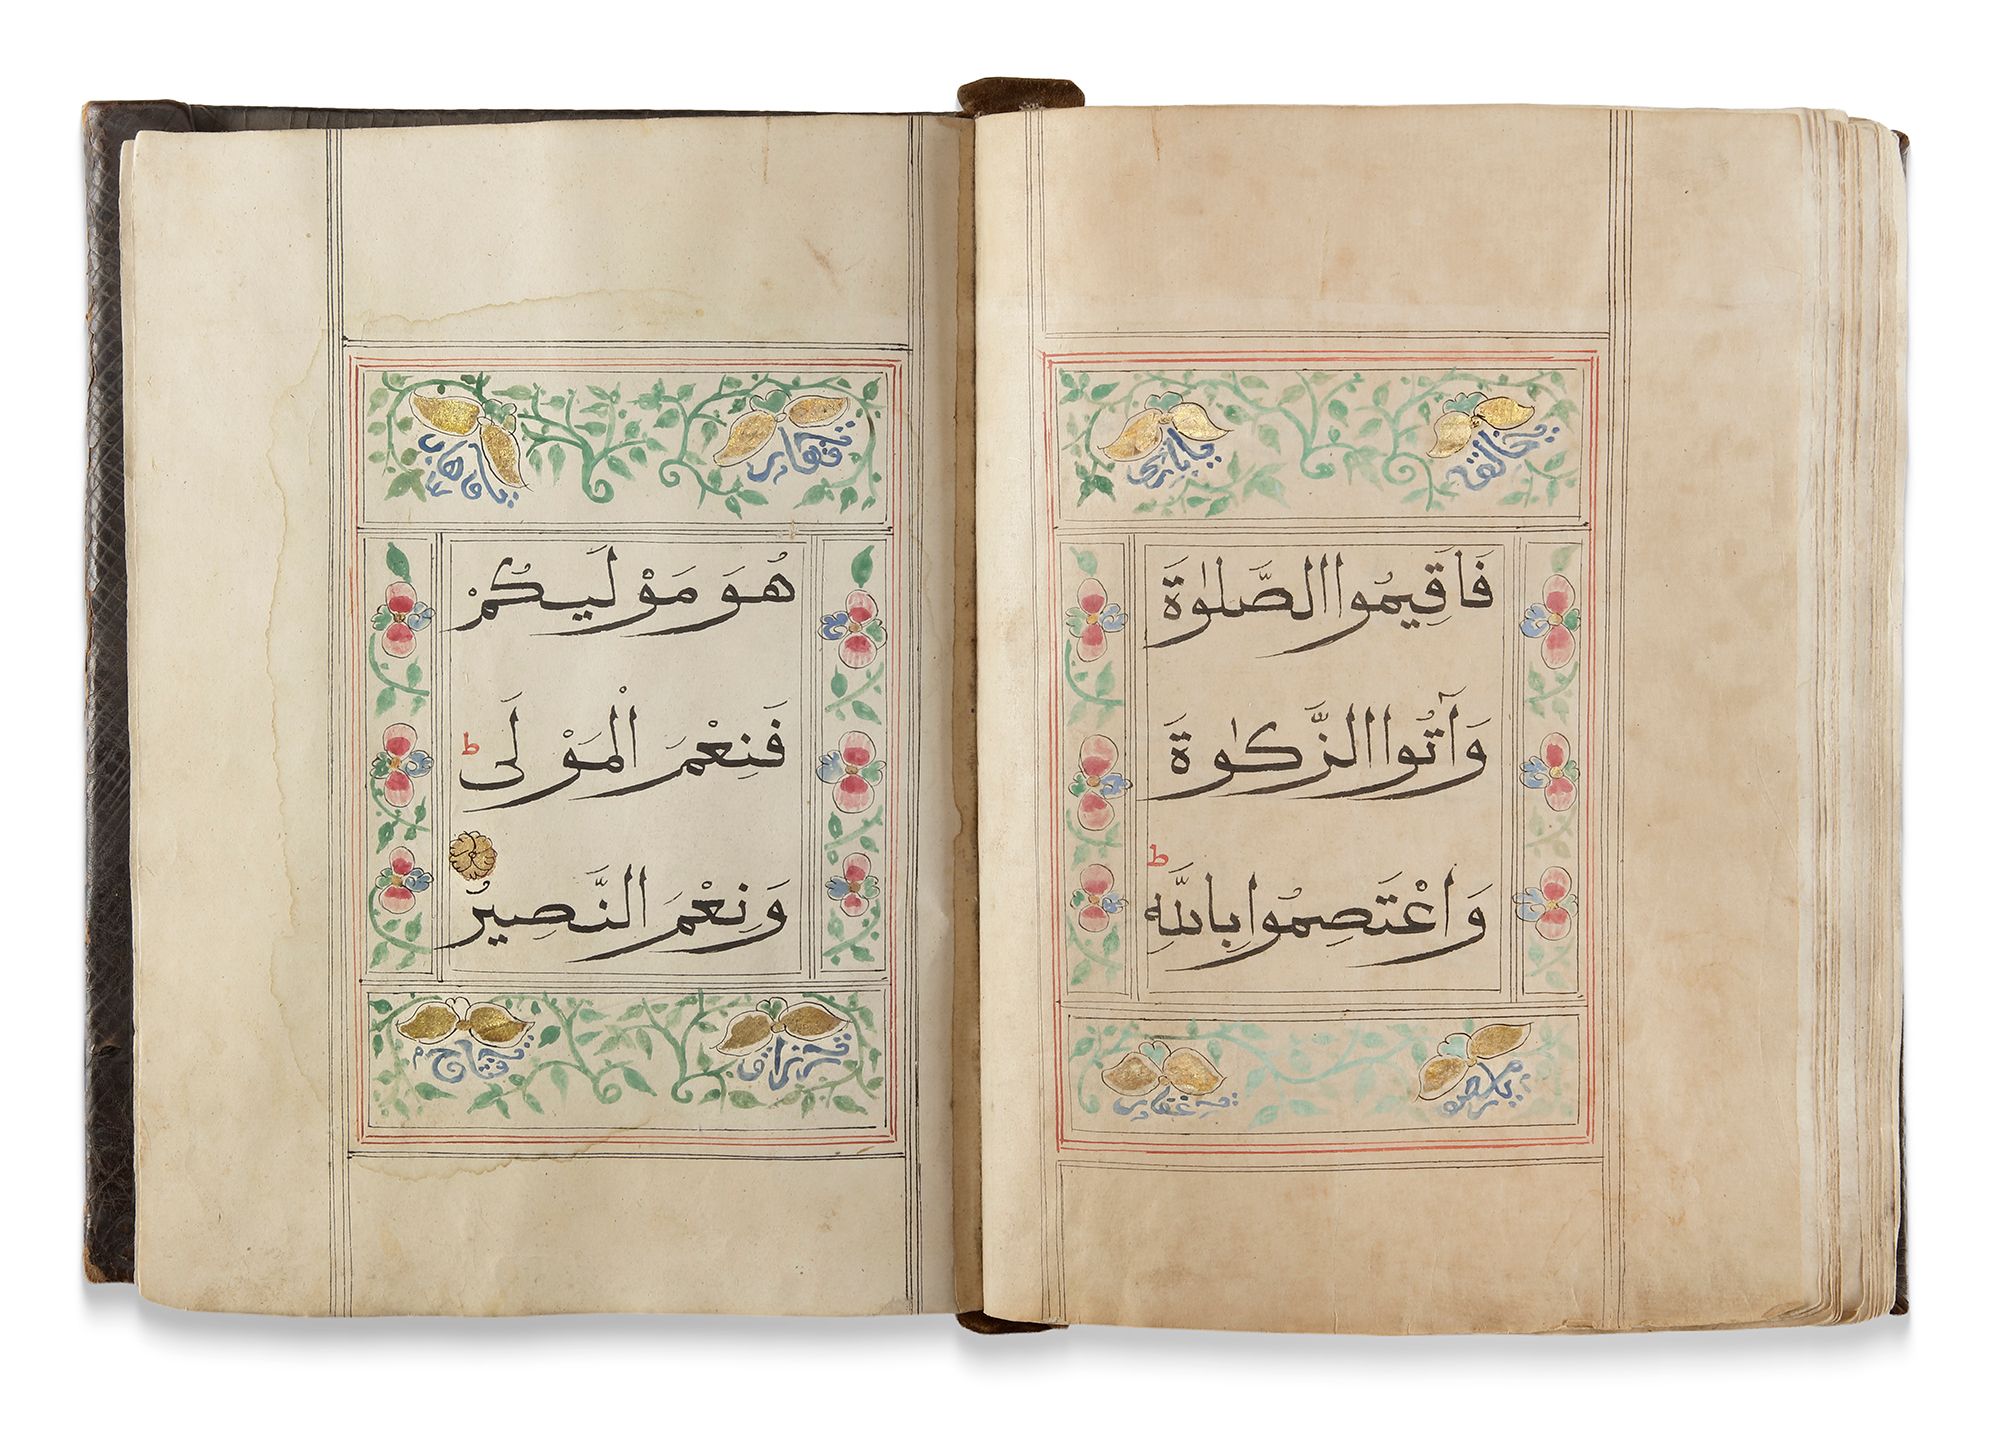 يا خالق يا بارئ
فَاَقِيمُوا الصَّلٰوةَ
وَآتُوا الزَّكٰوةَ
وَاعْتَصِمُوا بِاللّٰهِ ط
يا مصور يا غفار
يا قهار يا وهاب
هُوَ مَوْلَيكُمْ
فَنِعْمَ الْمَوْلَى ط
وَنِعْمَ النَّصِيرُ
يا رزاق يا فتاح